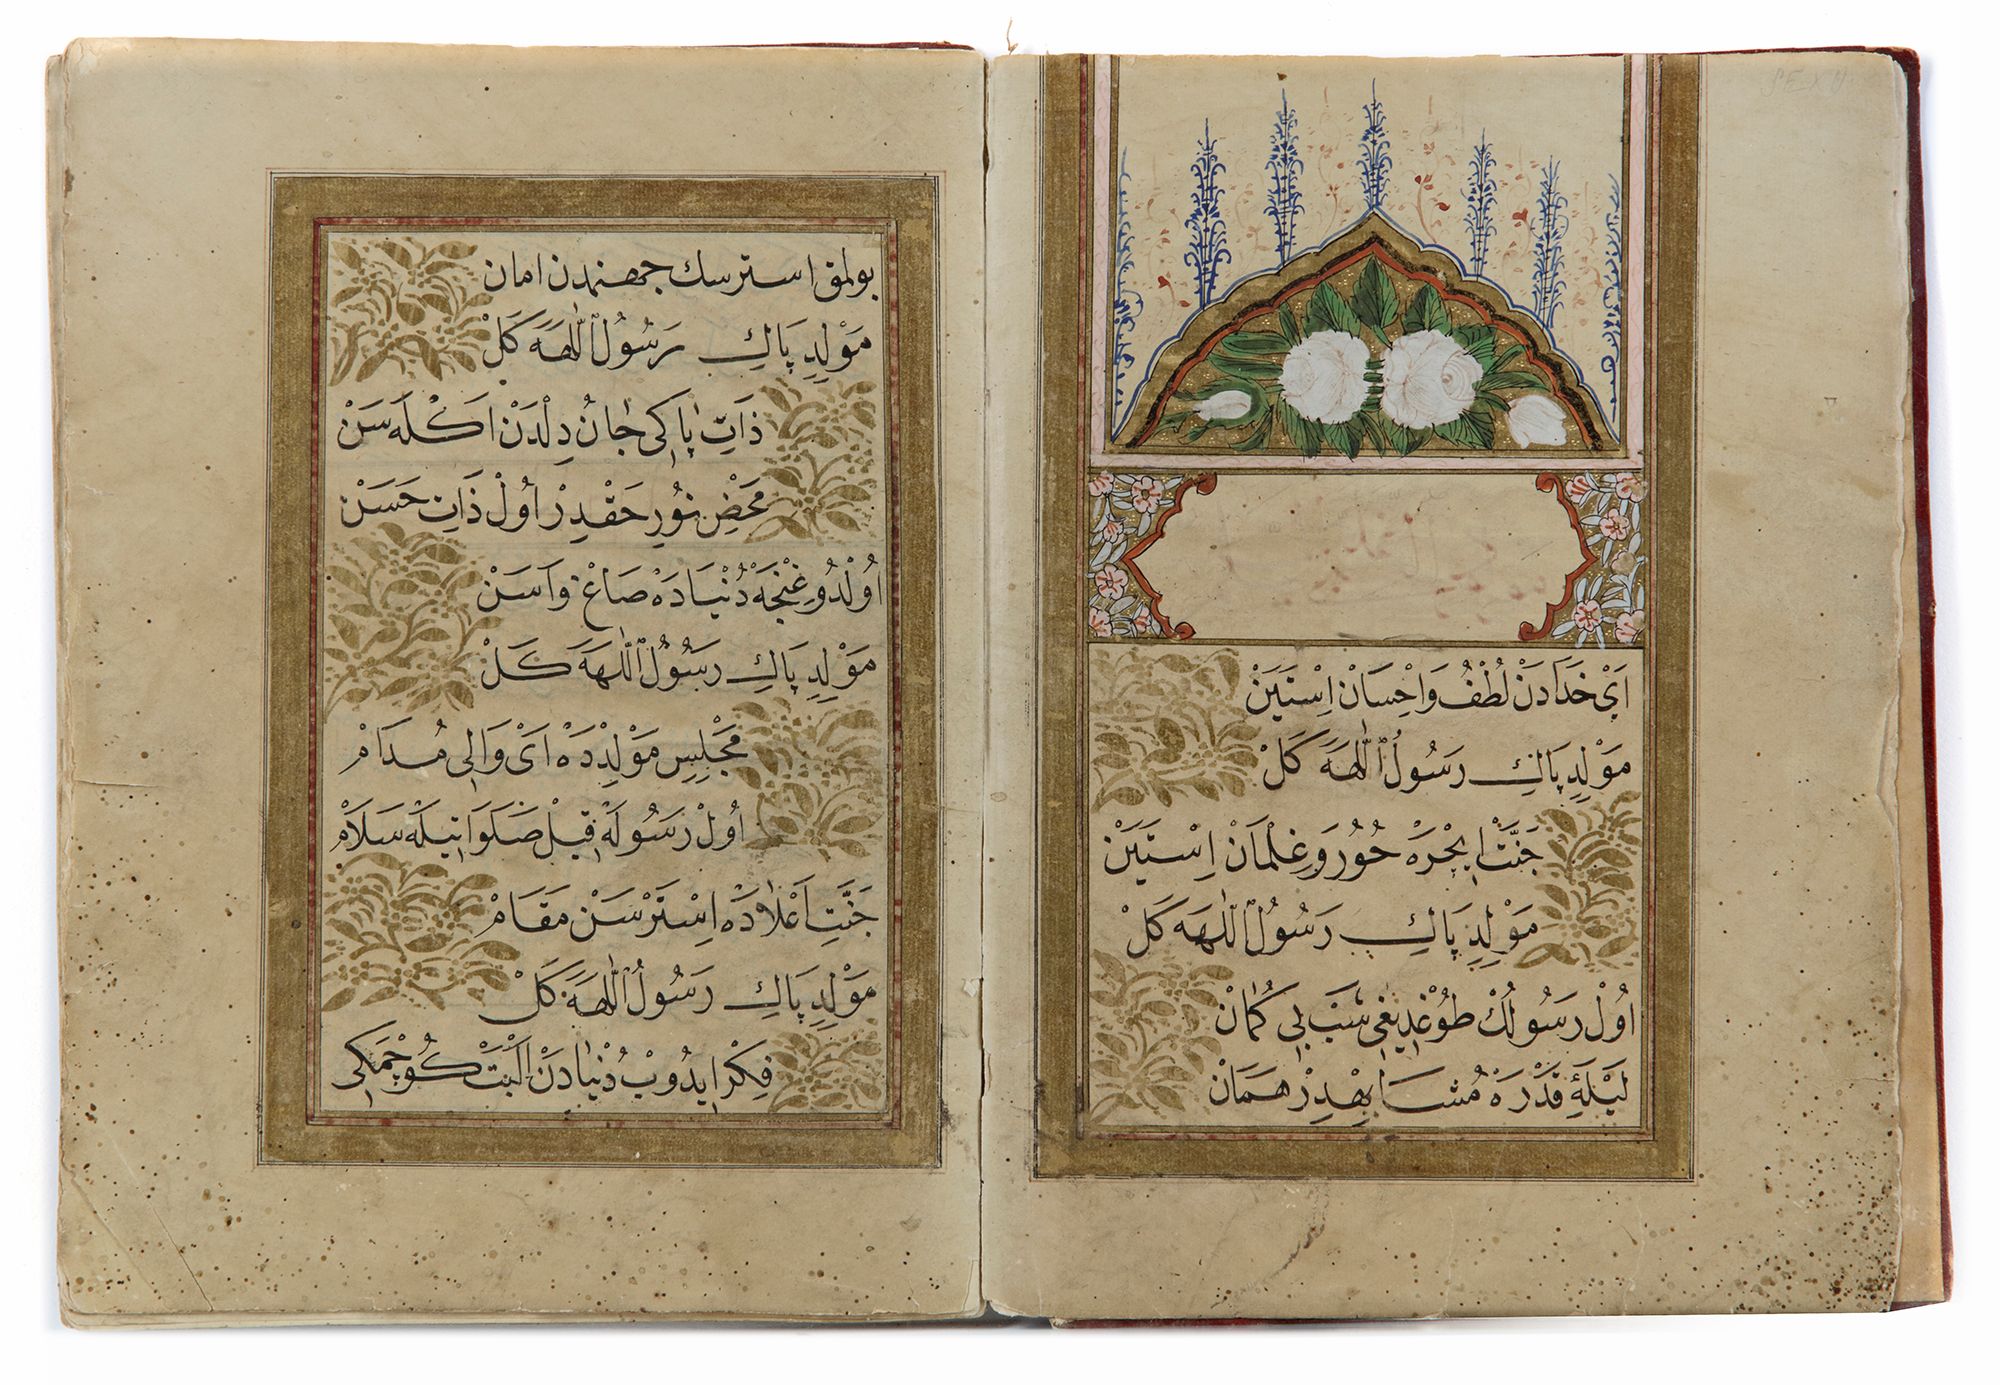 اَيْ خُدَادَنْ لُطْفُ وَاِحْسَانْ اِسْتَيَنْ
مَوْلِدِ پَاكِ رَسُولُ اللّٰهَه كَلْ
جَنَّتْ اِيچْرَهْ حُورُ وَغِلْمَانْ اِسْتَيَنْ
مَوْلِدِ پَاكِ رَسُولُ اللّٰهَه كَلْ
اُولْ رَسُولُكْ طُوغْدِيغِى شَبْ بِى كُمَانْ
لَيْلَهِٔ قَدْرَهْ مُشَابِهْدِرْ هَمَانْ
بولمق استرسك جهنمدن امان
مَوْلِدِ پَاكِ رَسُولُ اللّٰهَه كَلْ
ذَاتِ پَاكِى جَانُ دِلْدَنْ اَكْلَه سَنْ
مَحْضِ نُورِ حَقْدِرْ اُولْ ذَاتِ حَسَنْ
اُولْدُو غِنْجَهْ دُنْيَادَهْ صَاغْ وَاَسَنْ
مَوْلِدِ پَاكِ رَسُولُ اللّٰهَه كَلْ
مَجْلِسِ مَوْلِدْدَهْ اَىْ وَالِى مُدَامْ
اُولْ رَسُولَهْ قِيلْ صَلَوَاتِيلَه سَلَامْ
جَنَّتِ اَعْلَادَهْ اِسْتَرْسَنْ مَقَامْ
مَوْلِدِ پَاكِ رَسُولُ اللّٰهَه كَلْ
فِكْرْ اِيدُوبْ دُنْيَادَنْ اَلْبَتْ كُوچْمَكِى